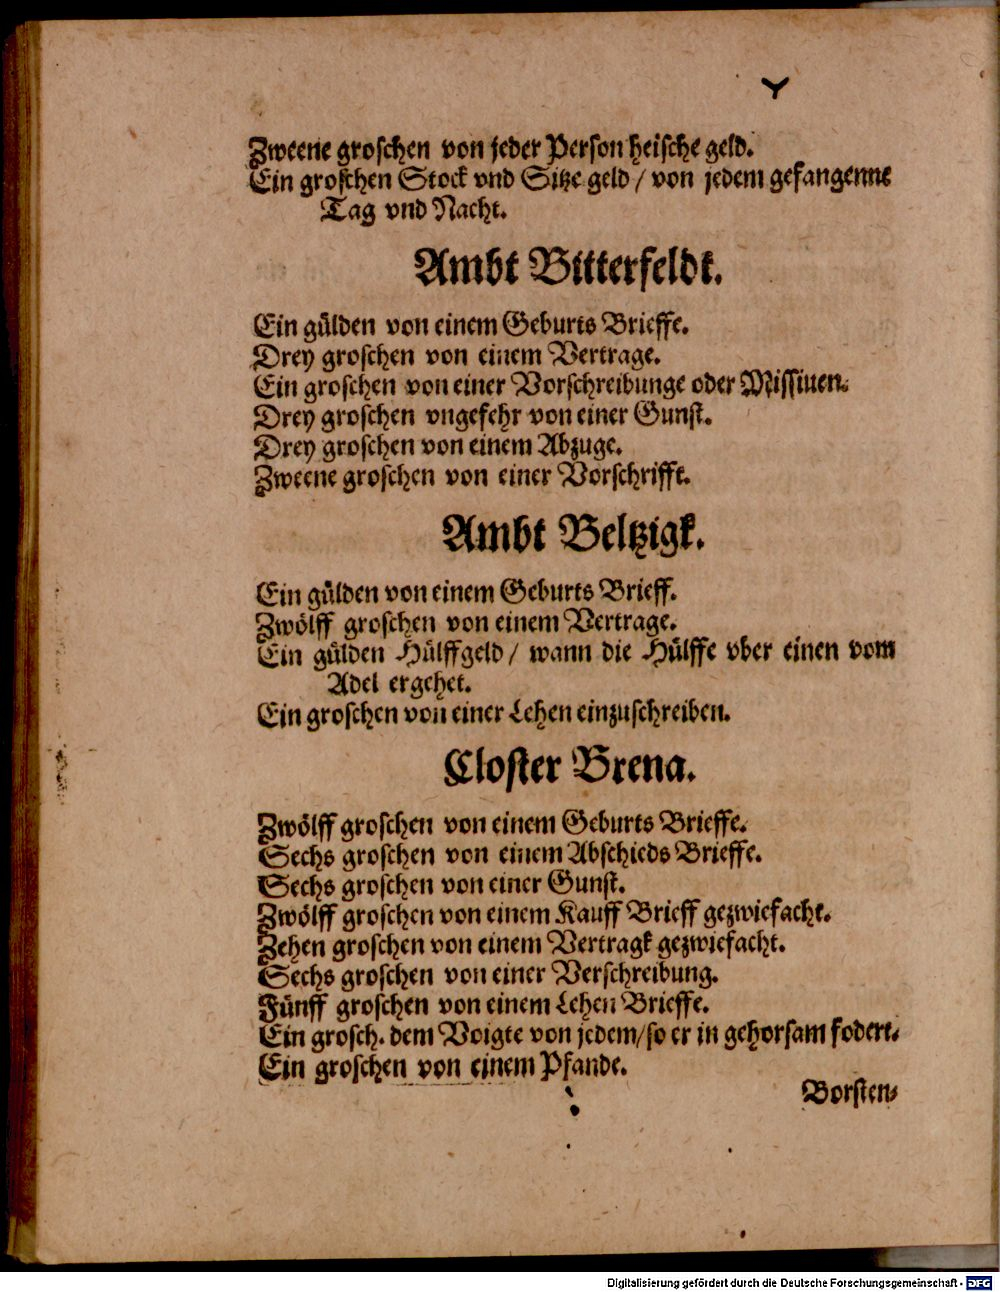 Zweene groschen von jeder Person heische geld.
Ein groschen Stock vnd Sitze geld / von jedem gefangenne
Tag vnd Nacht.
Ambt Bitterfeldt.
Ein gülden von einem Geburts Brieffe.
Drey groschen von einem Vertrage.
Ein groschen von einer Vorschreibunge oder Missiuen.
Drey groschen vngefehr von einer Gunst.
Drey groschen von einem Abzuge.
Zweene groschen von einer Vorschrifft.
Ambt Beltzigk.
Ein gülden von einem Geburts Brieff.
Zwölff groschen von einem Vertrage.
Ein gülden Hülffgeld / wann die Hülffe vber einen vom
Adel ergehet.
Ein groschen von einer Lehen einzuschreiben.
Closter Brena.
Zwölff groschen von einem Geburts Brieffe.
Sechs groschen von einem Abschieds Brieffe.
Sechs groschen von einer Gunst.
Zwölff groschen von einem Kauff Brieff gezwiefacht.
Zehen groschen von einem Vertragk gezwiefacht.
Sechs groschen von einer Verschreibung.
Fünff groschen von einem Lehen Brieffe.
Ein grosch. dem Voigte von jedem/so er in gehorsam fodert.
Ein groschen von einem Pfande.
Borsten-
Digitalisierung gefördert durch die Deutsche Forschungsgemeinschaft - DFG